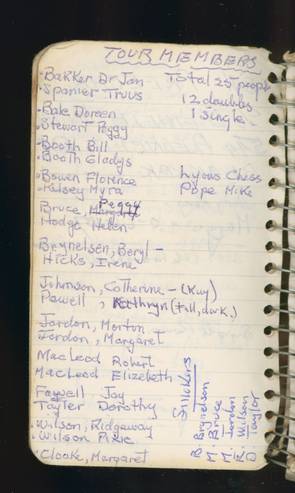 TOUR MEMBERS
Bakker Dr Jan
Spanier Truus
Total 25 people
12 doubles
1 single
Bake Doreen
Stewart Peggy
Booth Bill
Booth Gladys
Bowen Florence
Kelsey Myra
Lyons Chess
Pope Mike
Bruce, Peggy
Hodge Helen
Brynelsen, Beryl -
Hicks, Irene
Johnson, Catherine - (Kay)
Powell, Kathryn (tall, dark.)
Jordon, Morton
Jordon, Margaret
MacLeod Robert
MacLeod Elizabeth
Fawell Joy
Taylor Dorothy
Wilson, Ridgeway
Wilson Pixie
Cloake, Margaret
B. Brynelson
M. Bruce
M. Jordon
R. Wilson
D Taylor